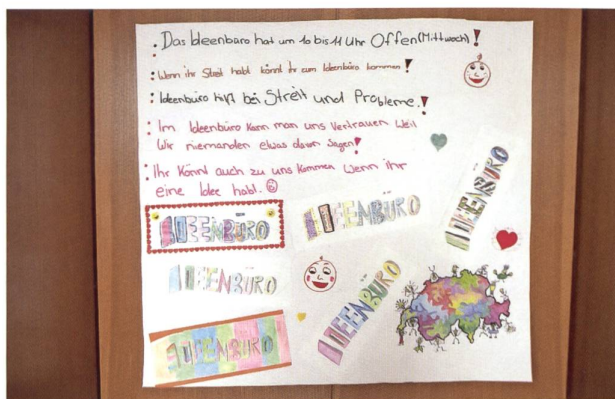 : Das Ideenbüro hat um 10 bis 11 Uhr Offen (Mittwoch)!
: Wenn ihr Streit habt könnt ihr zum Ideenbüro kommen!
: Ideenbüro hilft bei Streit und Probleme.!
: Im Ideenbüro kann man uns Vertrauen Weil
Wir niemanden etwas davon sagen!
: Ihr Könnt auch zu uns Kommen wenn ihr
eine Idee habt.
IDEENBÜRO
IDEENBÜRO
IDEENBÜRO
IDEENBÜRO
IDEENBÜRO
IDEENBÜRO